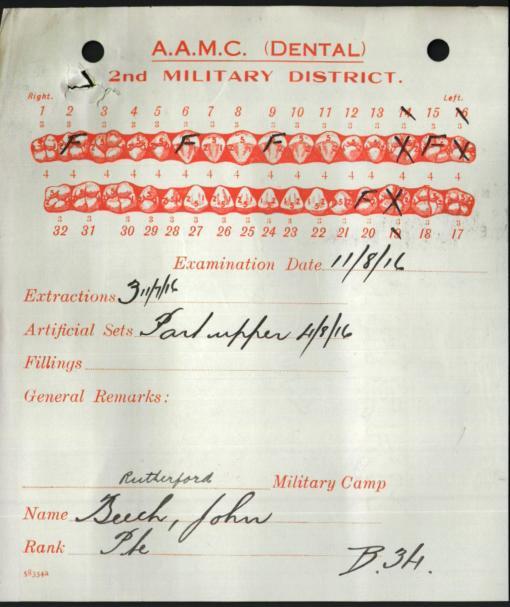 A.A.M.C. (DENTAL)
2nd MILITARY DISTRICT.
Right. Left.
1 2 3 4 5 6 7 8 9 10 11 12 13 14 15 16
3 3 3 3 3 3 3 3 3 3 3 3 3 3 3 3
F F F X F X
4 4 4 4 4 4 4 4 4 4 4 4 4 4 4 4
F X
3 3 3 3 3 3 3 3 3 3 3 3 3 3 3 3
32 31 30 29 28 27 26 25 24 23 22 21 20 19 18 17
Examination Date 11/8/16
Extractions 3 11/7/16
Artificial Sets Part upper 4/8/16
Fillings
General Remarks:
Rutherford Military Camp
Name Beech, John
Rank Pte
B.34.
S8354a